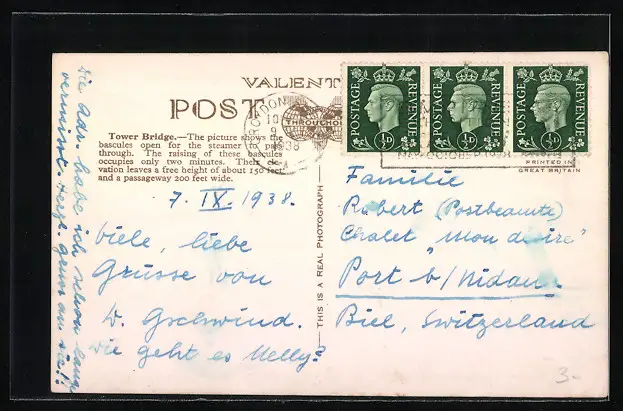 VALENT
POST
Tower Bridge.—The picture shows the
bascules open for the steamer to pass
through. The raising of these bascules
occupies only two minutes. Their ele-
vation leaves a free height of about 150 feet
and a passageway 200 feet wide.
7. IX. 1938.
Viele, liebe
Grüsse von
W. Gschwind.
Wie geht es Nelly?
Die Adr. habe ich schon lang
vermisst. Herzl. Gruss an sie!!
THIS IS A REAL PHOTOGRAPH
CROYDON
10
9
1938
THROUGHOUT
POSTAGE REVENUE ½D
POSTAGE REVENUE ½D
POSTAGE REVENUE ½D
PRINTED IN
GREAT BRITAIN
Familie
Robert (Postbeamte)
Chalet "Mon désire"
Port b/Nidau.
Biel, Switzerland
3-